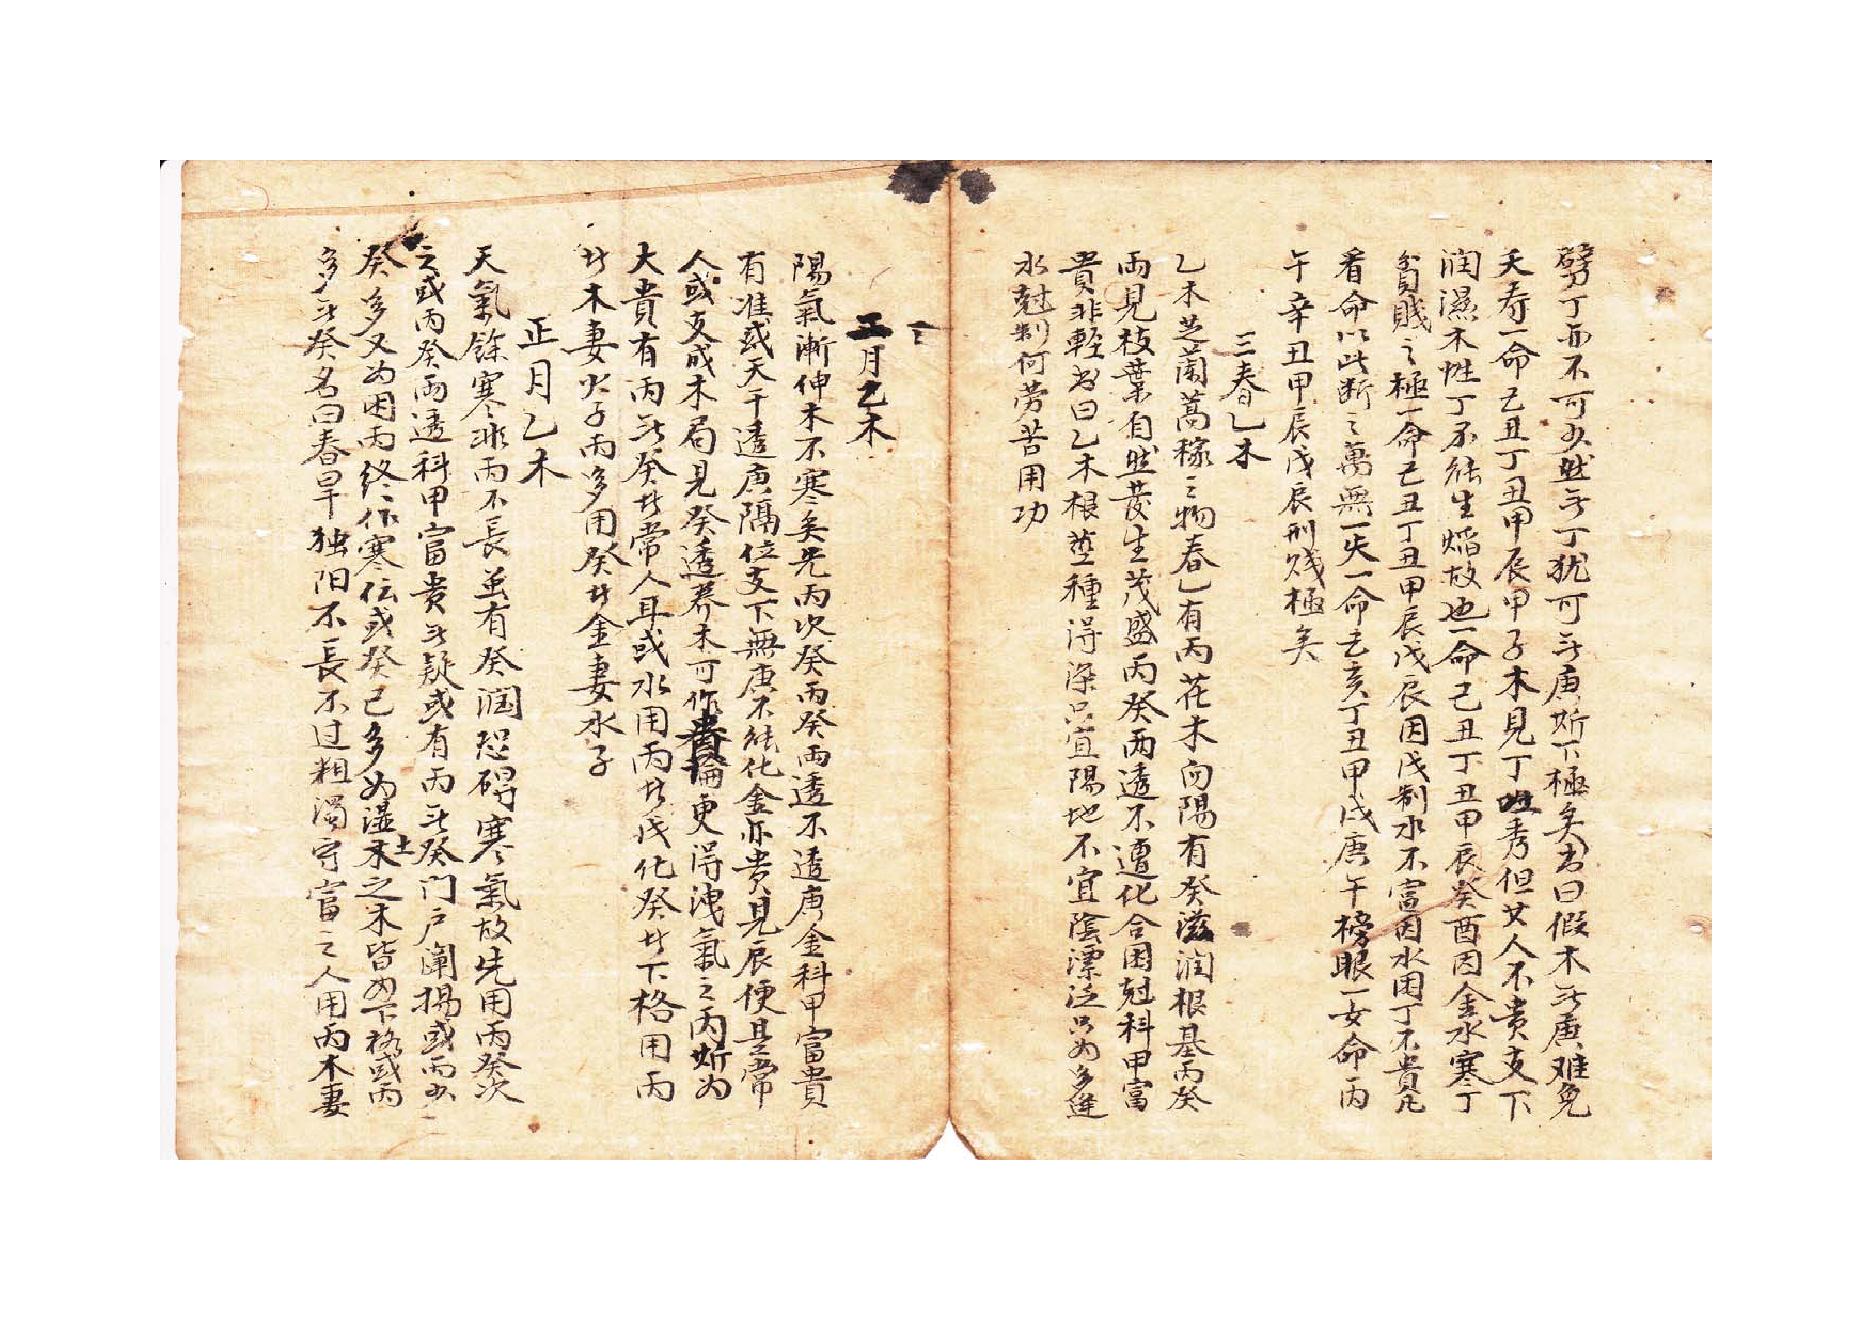 劈丁亦不可少然无丁犹可无庚斯下極矣书曰假木无庚难免
夭寿一命己丑丁丑甲辰甲子木見丁秀但女人不贵支下
润濕木性丁不能生焰故也一命己丑丁丑甲辰癸酉因金水寒丁
貧賤之極一命己丑丁丑甲辰戊辰因戊制水不富因水困丁不貴凡
看命以此断之萬無一失一命己亥丁丑甲戌庚午榜眼一女命丙
午辛丑甲辰戊辰刑贱極矣
三春乙木
乙木芝蘭蒿稼之物春乙有丙花木向陽有癸滋润根基丙癸
兩見枝葉自然發生茂盛丙癸两透不遭化合困尅科甲富
貴非輕书曰乙木根種得深只宜陽地不宜陰漂泛只为多逢
水尅制何劳苦用功
二月乙木
陽氣漸伸木不寒矣先丙次癸丙癸兩透不透庚金科甲富貴
有准或天干透庚隔位支下無庚不能化金亦贵見辰便是常
人或支成木局見癸透养木可作貴論更得洩氣之丙斯为
大貴有丙无癸廾常人耳或水用丙廾戊化癸廾下格用丙
廾木妻火子丙多用癸廾金妻水子
正月乙木
天氣餘寒非丙不長虽有癸润恐碍寒氣故先用丙癸次
之或丙癸兩透科甲富贵无疑或有丙无癸门户阐揚或丙少
癸多又为困丙终作寒伝或癸己多为湿土之木皆为下格或丙
多无癸名曰春旱独阳不長不过粗濁守富之人用丙木妻